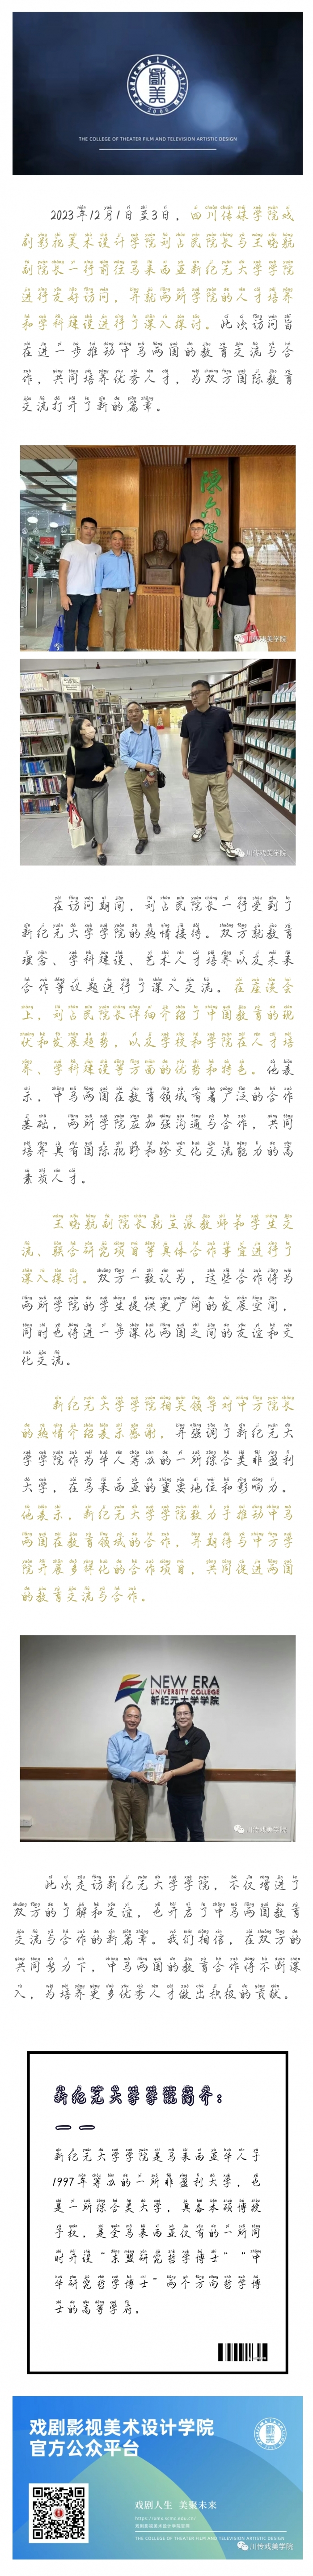 戲美
THE COLLEGE OF THEATER FILM AND TELEVISION ARTISTIC DESIGN
2023年12月1日至3日，四川传媒学院戏
剧影视美术设计学院刘占民院长与王晓航
副院长一行前往马来西亚新纪元大学学院
进行友好访问，并就两所学院的人才培养
和学科建设进行了深入探讨。此次访问旨
在进一步推动中马两国的教育交流与合
作，共同培养优秀人才，为双方国际教育
交流打开了新的篇章。
陳六使
川传戏美学院
川传戏美学院
在访问期间，刘占民院长一行受到了
新纪元大学学院的热情接待。双方就教育
理念、学科建设、艺术人才培养以及未来
合作等议题进行了深入交流。在座谈会
上，刘占民院长详细介绍了中国教育的现
状和发展趋势，以及学校和学院在人才培
养、学科建设等方面的优势和特色。他表
示，中马两国在教育领域有着广泛的合作
基础，两所学院应加强沟通与合作，共同
培养具有国际视野和跨文化交流能力的高
素质人才。
王晓航副院长就互派教师和学生交
流、联合研究项目等具体合作事宜进行了
深入探讨。双方一致认为，这些合作将为
两所学院的学生提供更广阔的发展空间，
同时也将进一步深化两国之间的友谊和文
化交流。
新纪元大学学院相关领导对中方院长
的热情介绍表示感谢，并强调了新纪元大
学学院作为华人筹办的一所综合类非盈利
大学，在马来西亚的重要地位和影响力。
他表示，新纪元大学学院致力于推动中马
两国在教育领域的合作，并期待与中方学
院开展多样化的合作项目，共同促进两国
的教育交流与合作。
NEW ERA
UNIVERSITY COLLEGE
新纪元大学学院
川传戏美学院
此次走访新纪元大学学院，不仅增进了
双方的了解和友谊，也开启了中马两国教育
交流与合作的新篇章。我们相信，在双方的
共同努力下，中马两国的教育合作将不断深
入，为培养更多优秀人才做出积极的贡献。
新纪元大学学院简介：
一一
新纪元大学学院是马来西亚华人于
1997年筹办的一所非盈利大学，也
是一所综合类大学，具备本硕博授
予权，是全马来西亚仅有的一所同
时开设“东盟研究哲学博士”“中
华研究哲学博士”两个方向哲学博
士的高等学府。
戏剧影视美术设计学院
官方公众平台
戏剧人生 美聚未来
戏剧影视美术设计学院官网
THE COLLEGE OF THEATER FILM AND TELEVISION ARTISTIC DESIGN
川传戏美学院